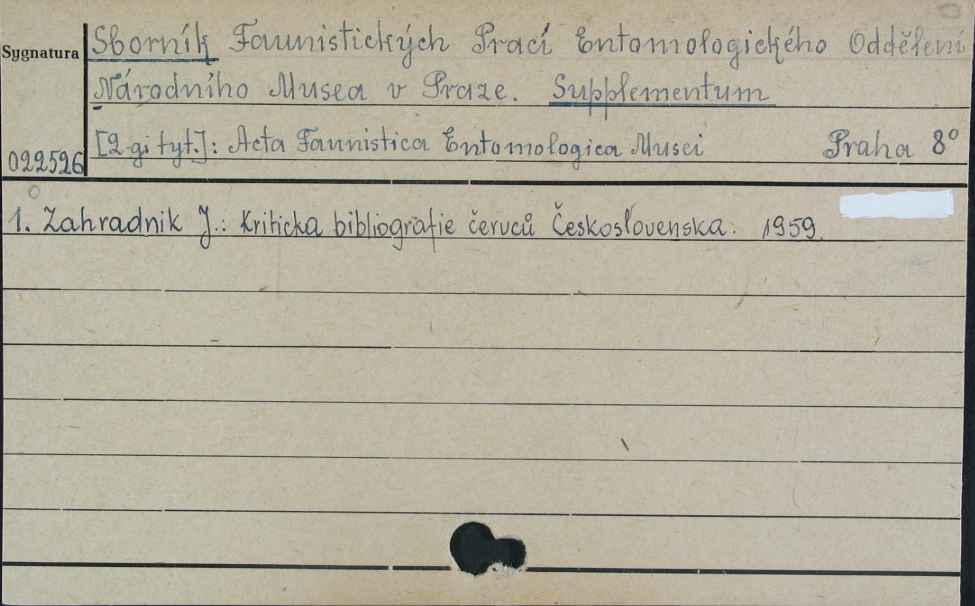 Sygnatura
Sborník Faunistických Prací Entomologického Oddělení
Národního Musea v Praze. Supplementum
[2-gi tyt.]: Acta Faunistica Entomologica Musei Praha 8°
022526
1. Zahradnik J.: Kriticka bibliografie červců Československa. 1959.